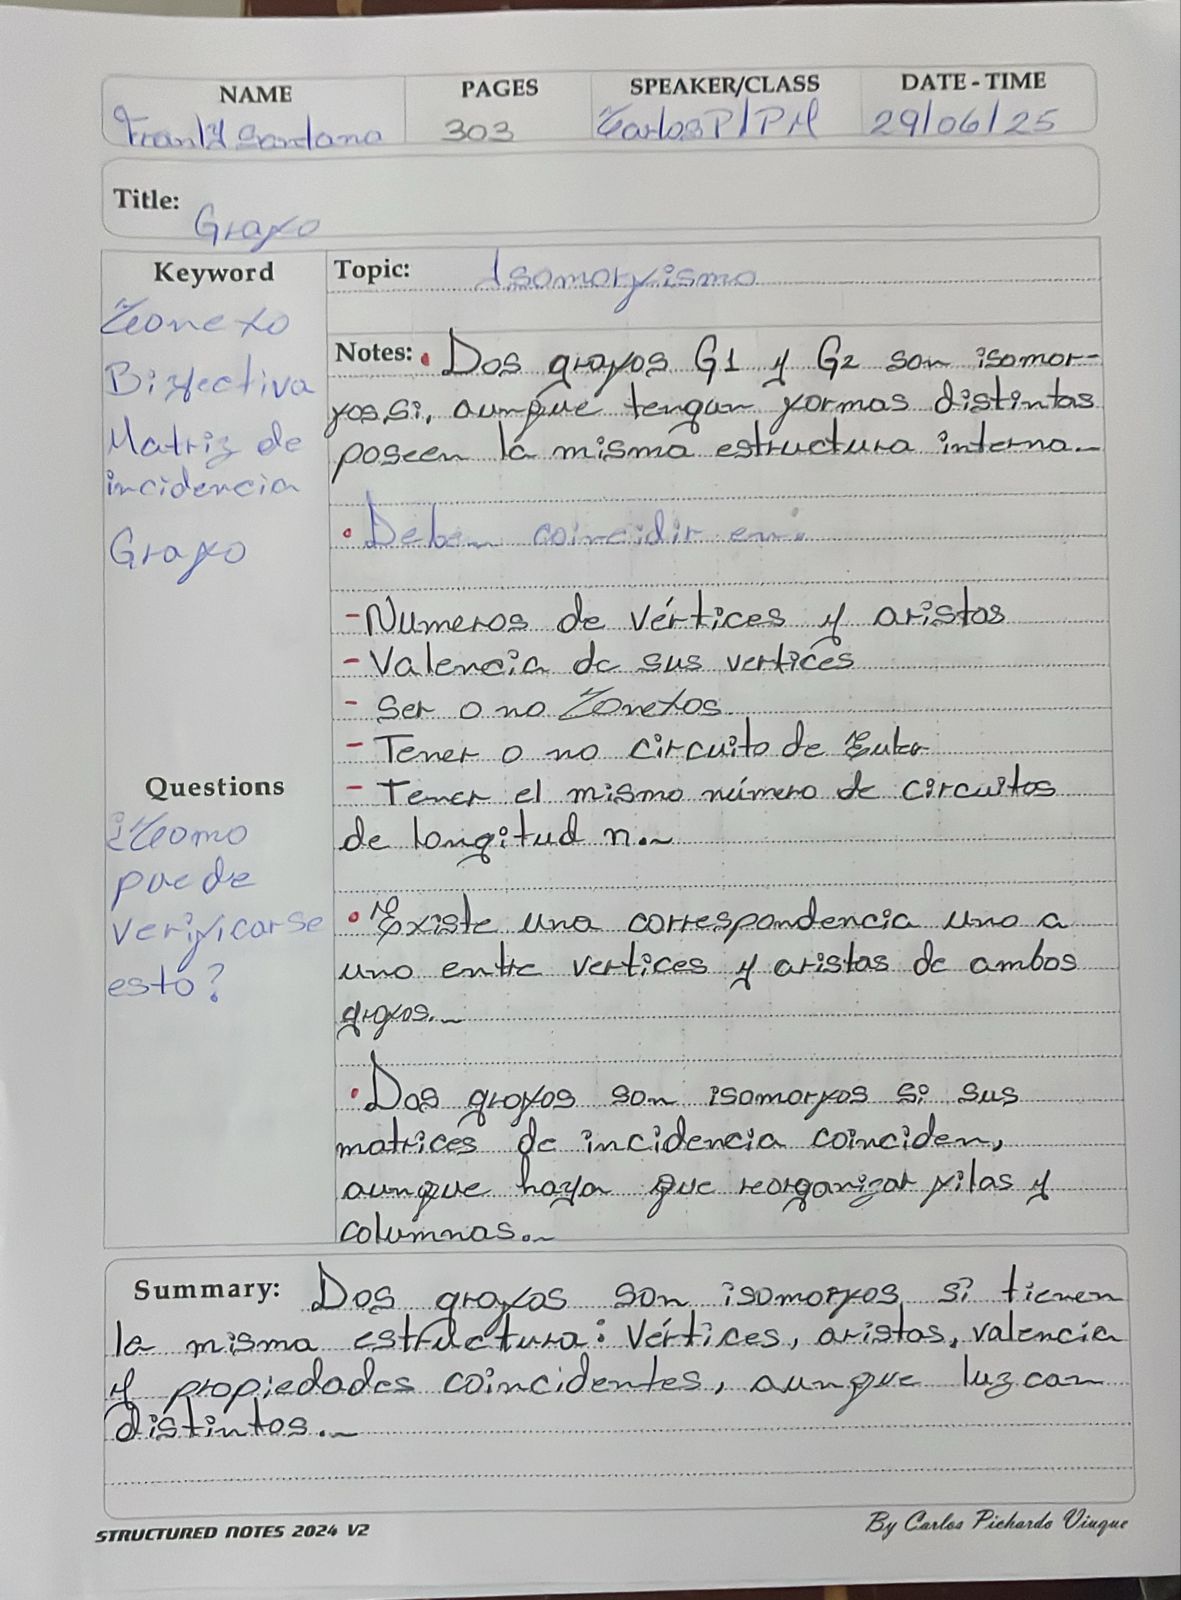 NAME
PAGES
SPEAKER/CLASS
DATE - TIME
303
Carlos P/PM
29/06/25
Title:
Grafo
Keyword
Conexo
Biyectiva
Matriz de
incidencia
Grafo
Questions
¿Como
puede
verificarse
esto?
Topic: Isomorfismo
Notes: • Dos grafos G1 y G2 son isomor-
fos si, aunque tengan formas distintas
poseen la misma estructura interna.
• Deben coincidir en:
- Numeros de vértices y aristas
- Valencia de sus vertices
- Ser o no Conexos
- Tener o no circuito de Euler
- Tener el mismo número de circuitos
de longitud n.
• Existe una correspondencia uno a
uno entre vertices y aristas de ambos
grafos.
• Dos grafos son isomorfos si sus
matrices de incidencia coinciden,
aunque haya que reorganizar filas y
columnas.
Summary: Dos grafos son isomorfos si tienen
la misma estructura: Vértices, aristas, valencia
y propiedades coincidentes, aunque luzcan
distintos.
STRUCTURED NOTES 2024 V2
By Carlos Pichardo Viuque